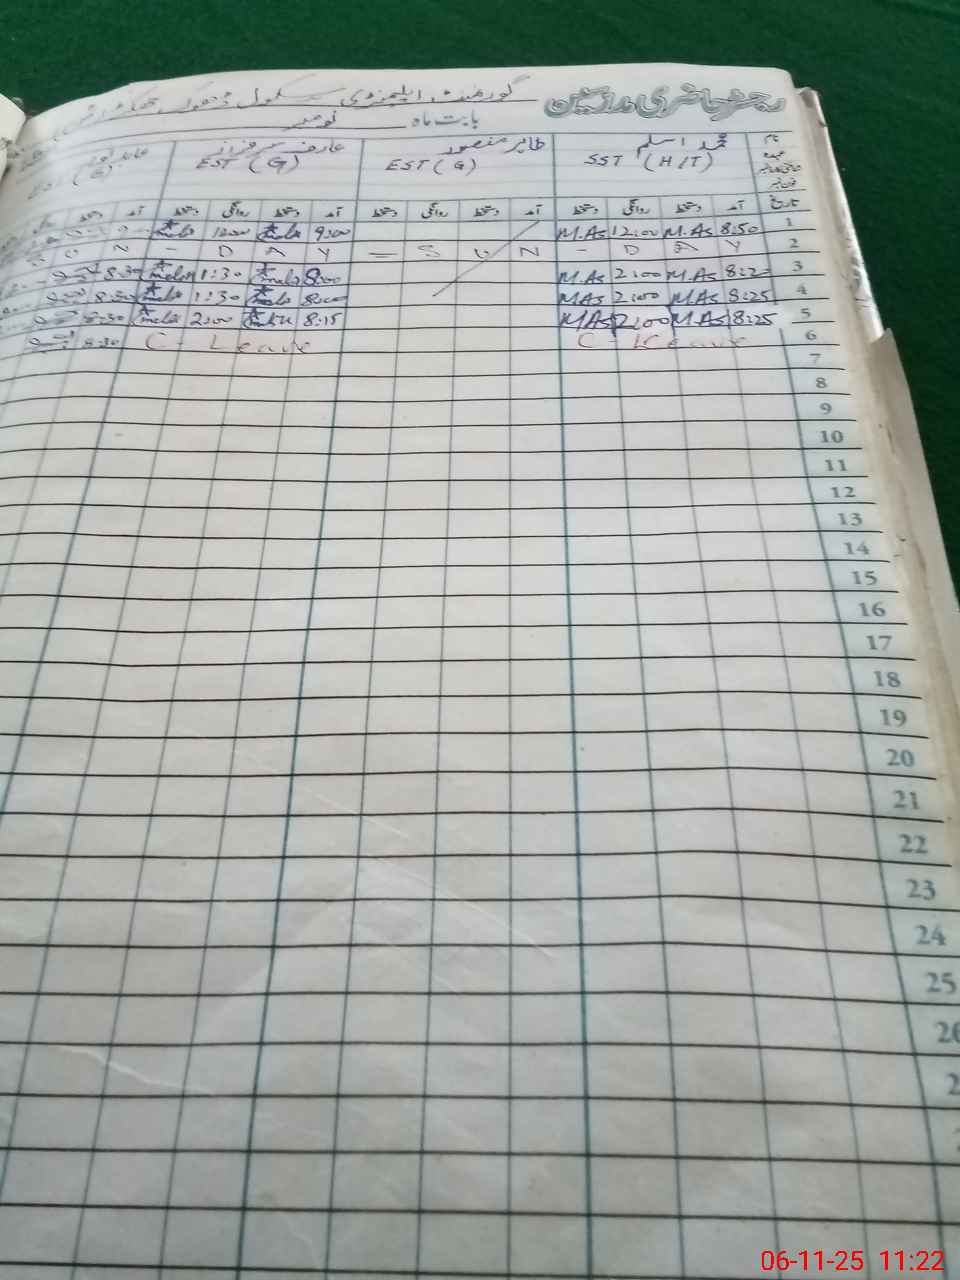 رجسٹر حاضری مدرسین گورنمنٹ ایلیمنٹری سکول ڈھوک
بابت ماہ نومبر
نام محمد اسلم طاہر منصور عارف سرفراز
عہدہ SST (H/T) EST (G) EST (G) (G)
تاریخ آمد دستخط روانگی دستخط آمد دستخط روانگی دستخط آمد دستخط روانگی دستخط آمد دستخط
1 8:50 M.As 12:00 M.As 9:00 12:00
2 S U N - D A Y = S U N - D A Y
3 8:20 M.As 2:00 M.As 8:00 1:30 8:30
4 8:25 M.As 2:00 M.As 8:00 1:30 8:30
5 8:25 M.As 2:00 M.As 8:15 2:00 8:30
6 C - Leave C - Leave 8:30
7
8
9
10
11
12
13
14
15
16
17
18
19
20
21
22
23
24
25
06-11-25 11:22